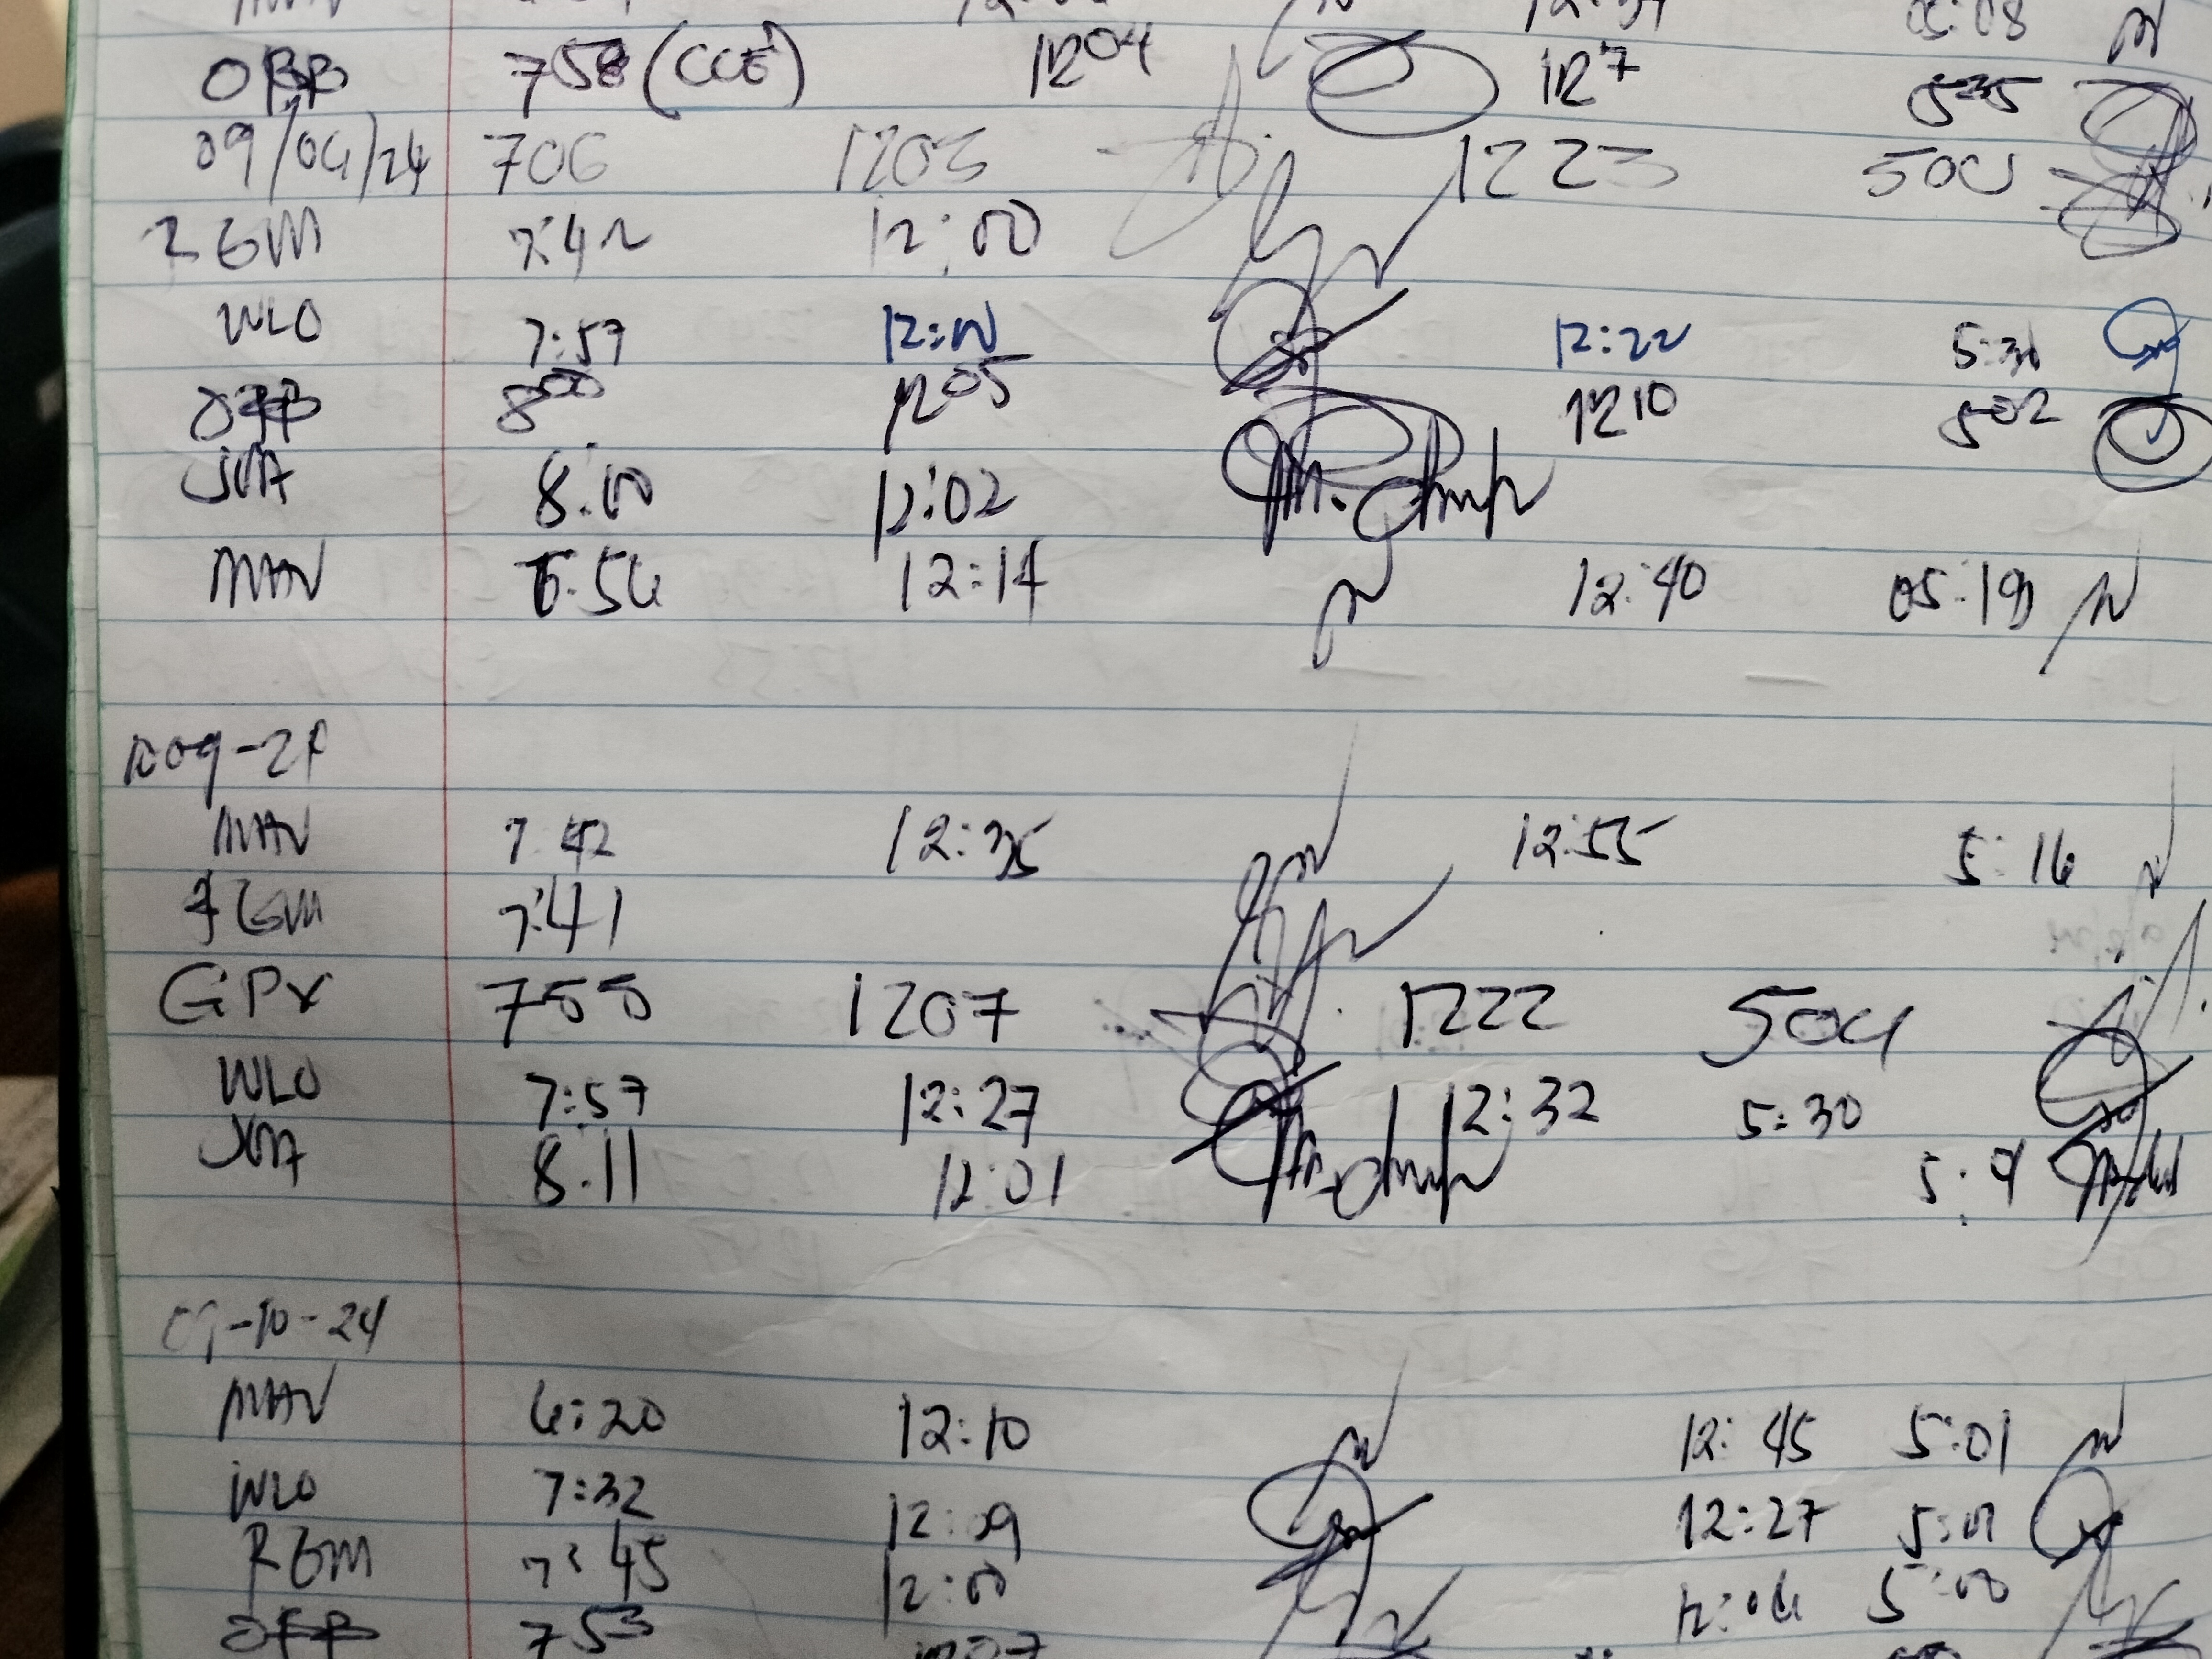 05:08
758 (CCE) 1204 127 535
09/04/24 706 1203 1223 500
RGM 7:42 12:00
WLO 7:57 12:00 12:22 5:30
800 1205 1210 502
JMA 8:00 12:02
MAV 6:54 12:14 12:40 05:19
MAV 7:42 12:35 12:55 5:16
RGM 7:41
GPV 755 1207 1222 504
WLO 7:57 12:27 12:32 5:30
JMA 8:11 12:01
09-10-24
MAV 6:20 12:10 12:45 5:01
WLO 7:32 12:09 12:27 5:01
RGM 7:45 12:00 12:04 5:00
753